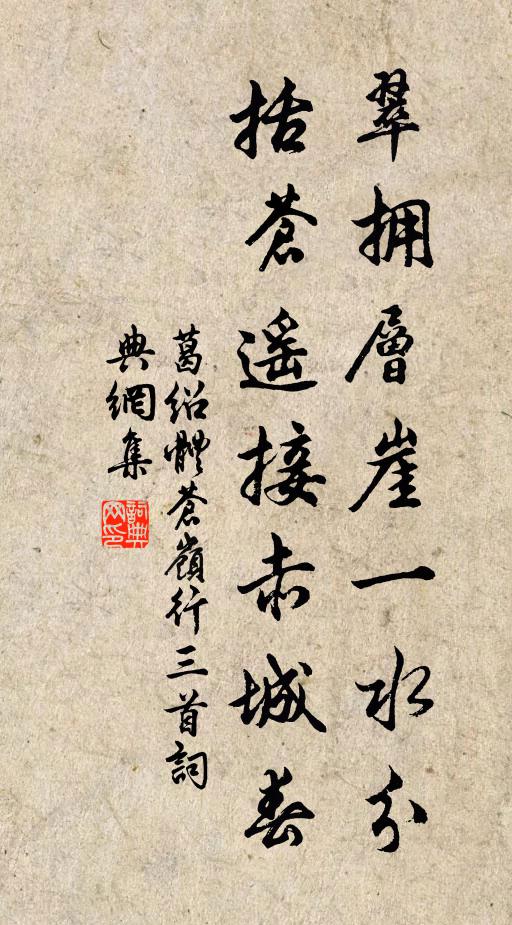 翠拥層崖一水分
括蒼遥接赤城春
葛绍體蒼嶺行三首詞
典網集
詞典
网印